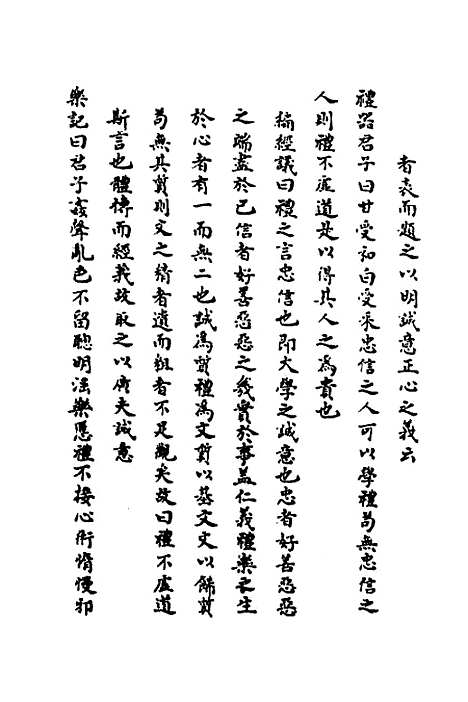 者表而題之以明誠意正心之義云
禮器君子曰甘受和白受采忠信之人可以學禮苟無忠信之
人則禮不虛道是以得其人之為貴也
編經議曰禮之言忠信也即大學之誠意也忠者好善惡惡
之端盡於己信者好善惡惡之幾實於事蓋仁義禮樂之生
於心者有一而無二也誠為質禮為文質以基文文以飾質
苟無其質則文之綺者遺而粗者不足觀矣故曰禮不虛道
斯言也體傳而經義故取之以廣夫誠意
樂記曰君子姦聲亂色不留聰明淫樂慝禮不接心術惰慢邪